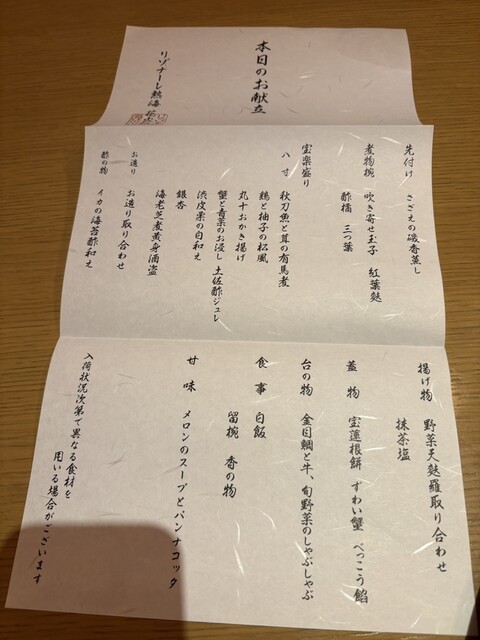 本日のお献立
リゾナーレ熱海
先付け さざえの磯香蒸し
煮物椀 吹き寄せ玉子 紅葉麩
酢橘 三つ葉
宝楽盛り
八寸 秋刀魚と茸の有馬煮
鶏と柚子の松風
丸十おかき揚げ
蟹と青菜のお浸し 土佐酢ジュレ
渋皮栗の白和え
銀杏
海老芝煮黄身酒盗
お造り お造り取り合わせ
酢の物 イカの海苔酢和え
揚げ物 野菜天麩羅取り合わせ
抹茶塩
蓋物 宝蓮根餅 ずわい蟹 べっこう餡
台の物 金目鯛と牛、旬野菜のしゃぶしゃぶ
食事 白飯
留椀 香の物
甘味 メロンのスープとパンナコッタ
入荷状況次第で異なる食材を
用いる場合がございます